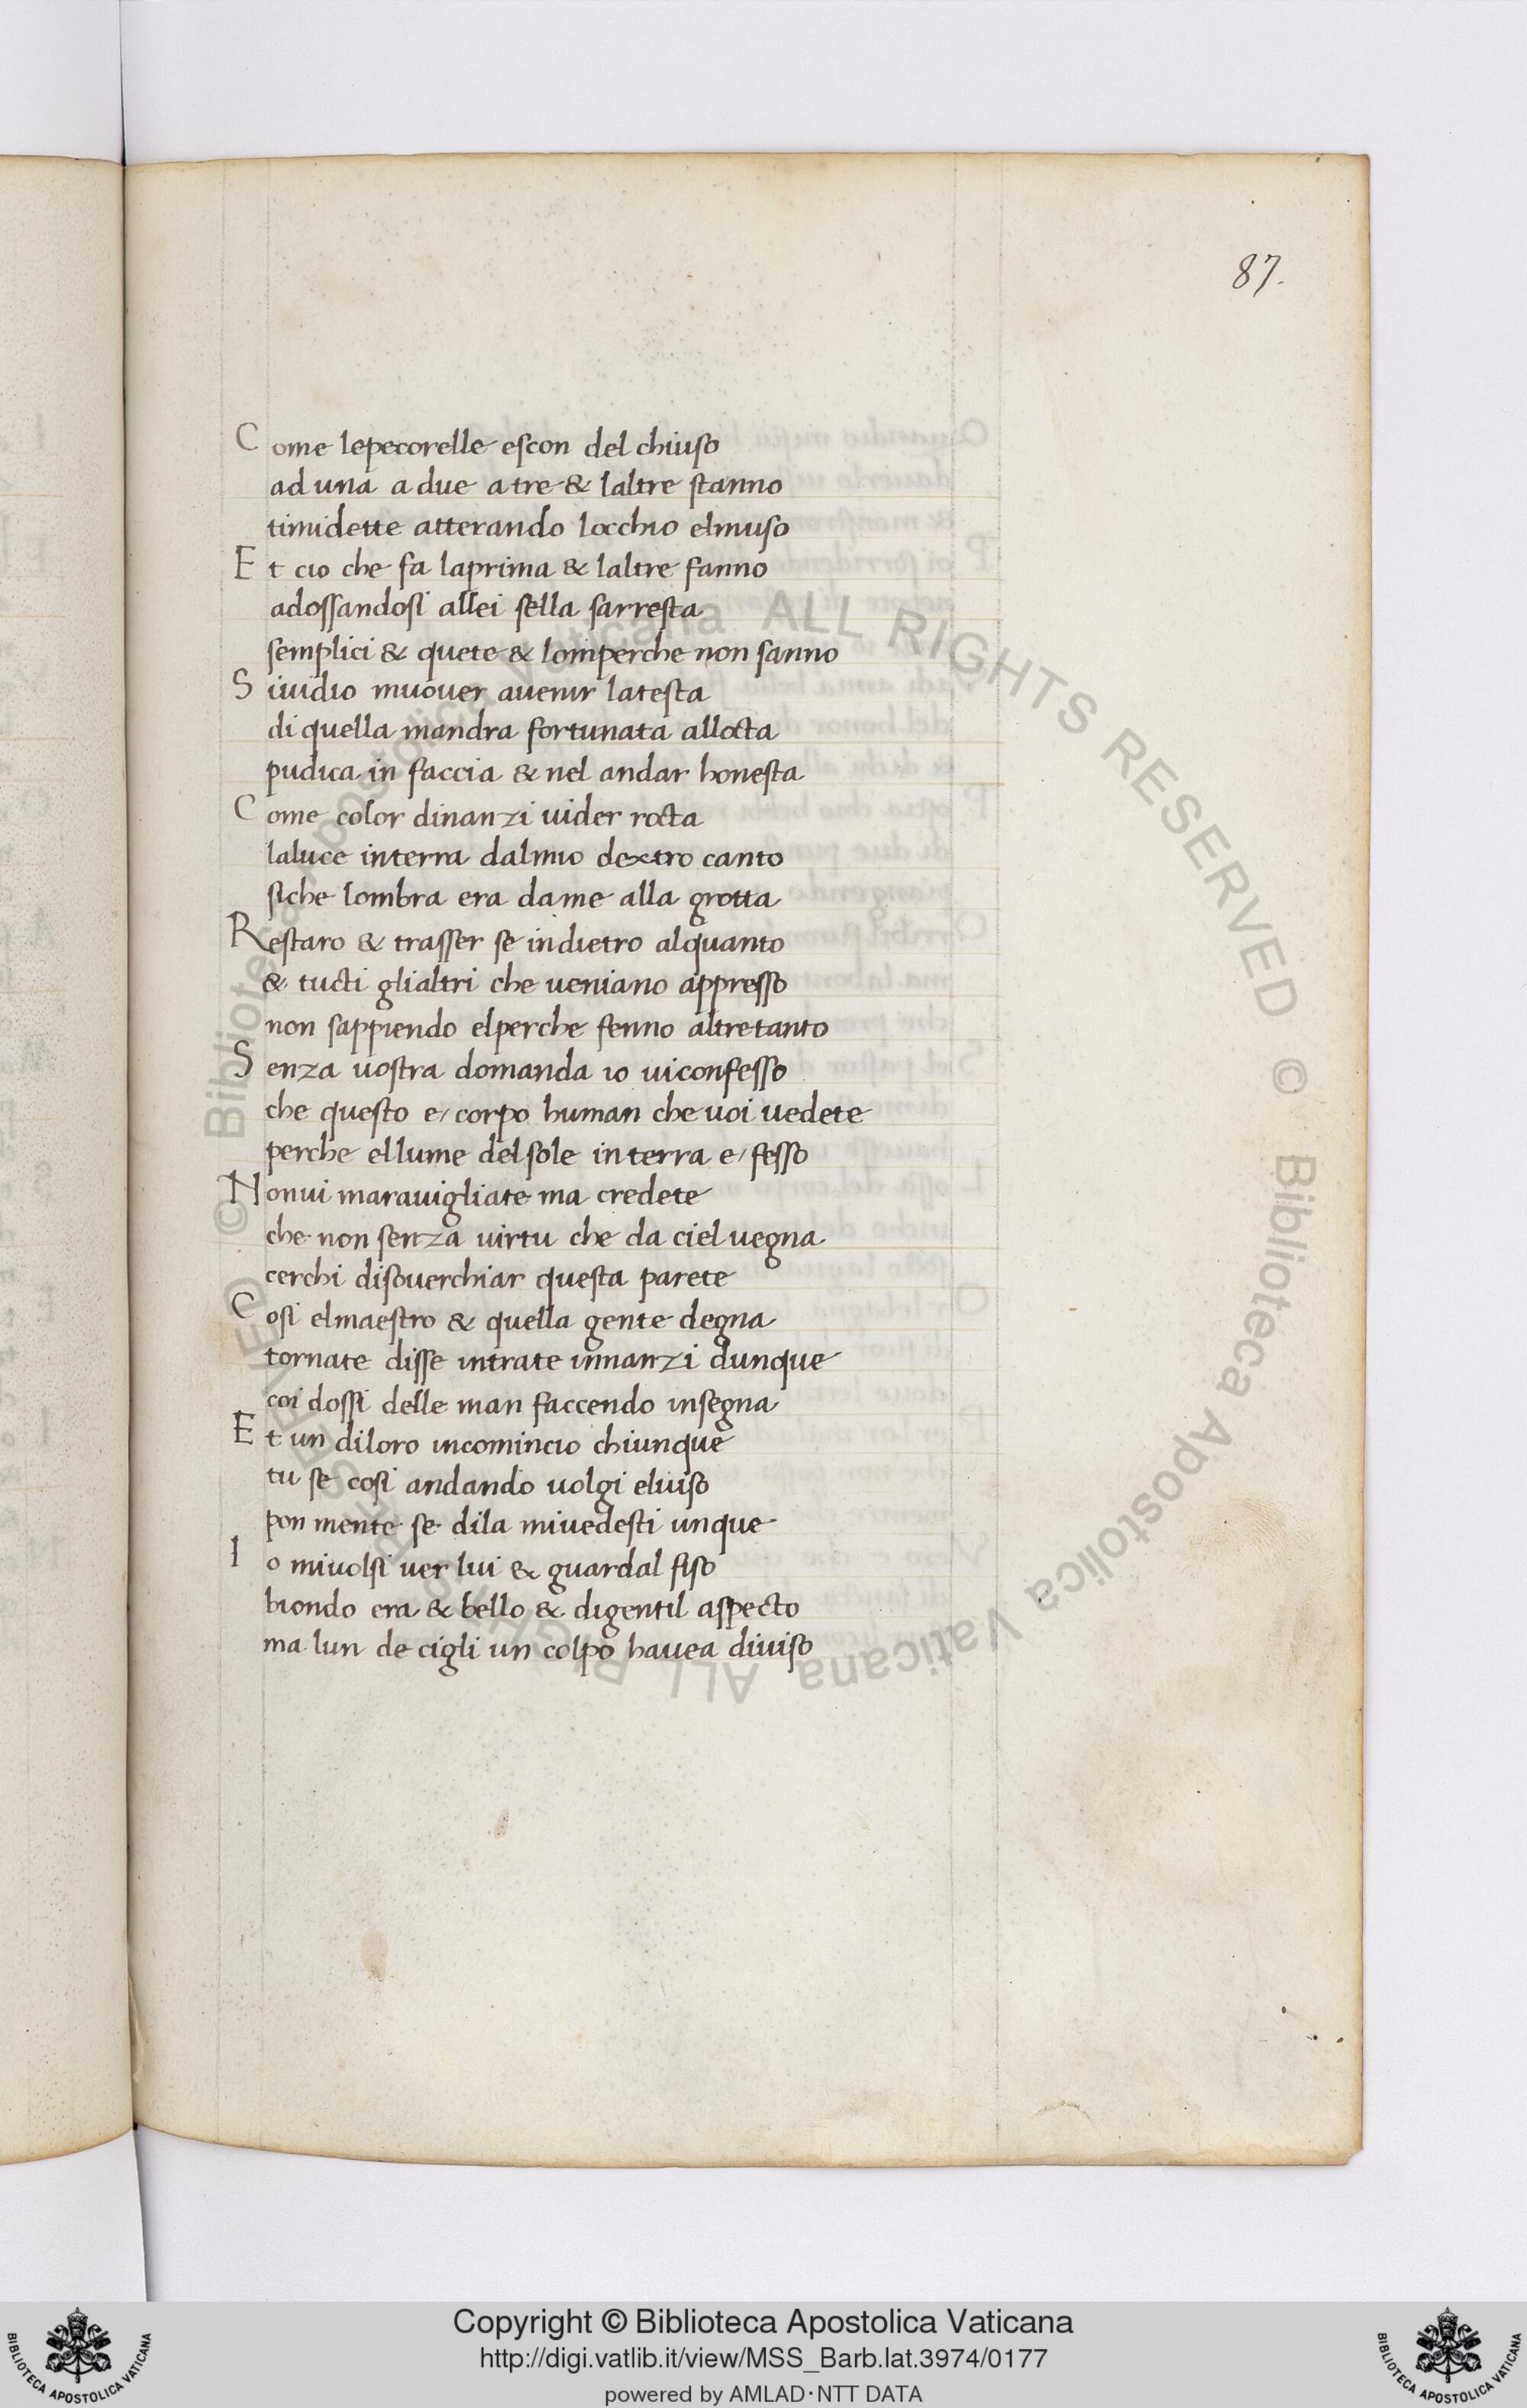 87.
Come lepecorelle escon del chiuso
ad una a due a tre & laltre stanno
timidette atterando locchio elmuso
Et cio che fa laprima & laltre fanno
adossandosi allei sella sarresta
semplici & quete & lomperche non sanno
Siuidio muouer auenir latesta
di quella mandra fortunata allocta
pudica in faccia & nel andar honesta
Come color dinanzi uider rocta
laluce interra dalmio dextro canto
siche lombra era dame alla grotta
Restaro & trasser se indietro alquanto
& tucti glialtri che ueniano appresso
non sappiendo elperche fenno altretanto
Senza uostra domanda io uiconfesso
che questo e/ corpo human che uoi uedete
perche ellume delsole interra e/ fesso
Nonui marauigliate ma credete
che non senza uirtu che da ciel uegna
cerchi disouerchiar questa parete
Cosi elmaestro & quella gente degna
tornate disse intrate innanzi dunque
coi dossi delle man faccendo insegna
Et un diloro incomincio chiunque
tu se cosi andando uolgi eluiso
pon mente se dila miuedesti unque
Io miuolsi uer lui & guardal fiso
biondo era & bello & digentil aspecto
ma lun de cigli un colpo hauea diuiso
© Biblioteca Apostolica Vaticana ALL RIGHTS RESERVED © Biblioteca Apostolica Vaticana ALL RIGHTS RESERVED
Copyright © Biblioteca Apostolica Vaticana
http://digi.vatlib.it/view/MSS_Barb.lat.3974/0177
powered by AMLAD·NTT DATA
BIBLIOTECA APOSTOLICA VATICANA
BIBLIOTECA APOSTOLICA VATICANA